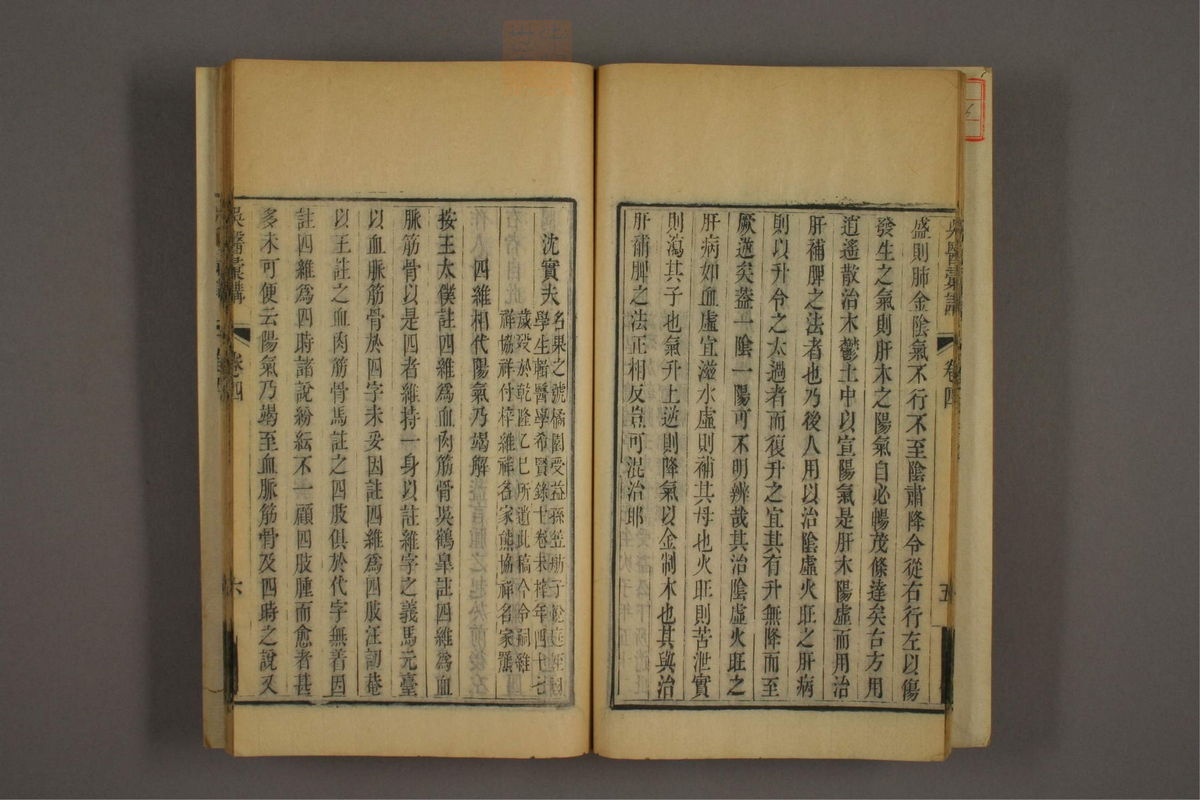 吳醫彙講 卷四 五
盛則肺金陰氣不行不至陰肅降令從右行左以傷
發生之氣則肝木之陽氣自必暢茂條達矣古方用
逍遙散治木鬱土中以宣陽氣是肝木陽虛而用治
肝補脾之法者也乃後人用以治陰虛火旺之肝病
則以升令之太過者而復升之宜其有升無降而至
厥逆矣蓋一陰一陽可不明辨哉其治陰虛火旺之
肝病如血虛宜滋水虛則補其母也火旺則苦泄實
則瀉其子也氣升上逆則降氣以金制木也其與治
肝補脾之法正相反豈可混治耶
沈實夫
名果之號橘園受益孫笠舫子
學生輯醫學希賢錄廿卷未梓年四十七
歲歿於乾隆乙巳所遺此稿令嗣維
祥協祥付梓維祥名家熊協祥名家
四維相代陽氣乃竭解
按王太僕註四維為血肉筋骨吳鶴皋註四維為血
脈筋骨以是四者維持一身以註維字之義馬元臺
以血脈筋骨於四字未妥因註四維為四肢汪訒菴
以王註之血肉筋骨馬註之四肢俱於代字無着因
註四維為四時諸說紛紜不一顧四肢腫而愈者甚
多未可便云陽氣乃竭至血脈筋骨及四時之說又
吳醫彙講 卷四 六